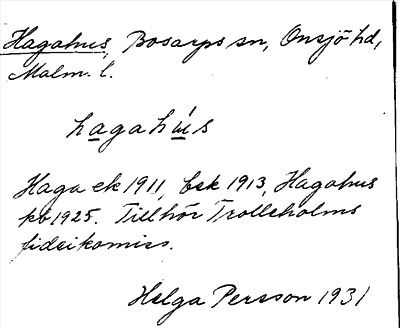 Hagahus, Bosarps sn, Onsjö hd,
Malm. l.
hagahús
Haga ek 1911, bsk 1913, Hagahus
kb 1925. Tillhör Trolleholms
fideikomiss.
Helga Persson 1931